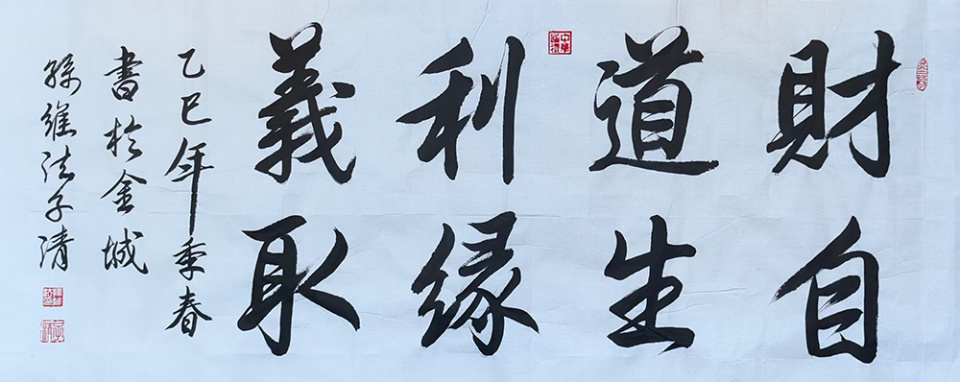 財自
道生
利缘
義取
乙巳年季春
書於金城
孫維法子清